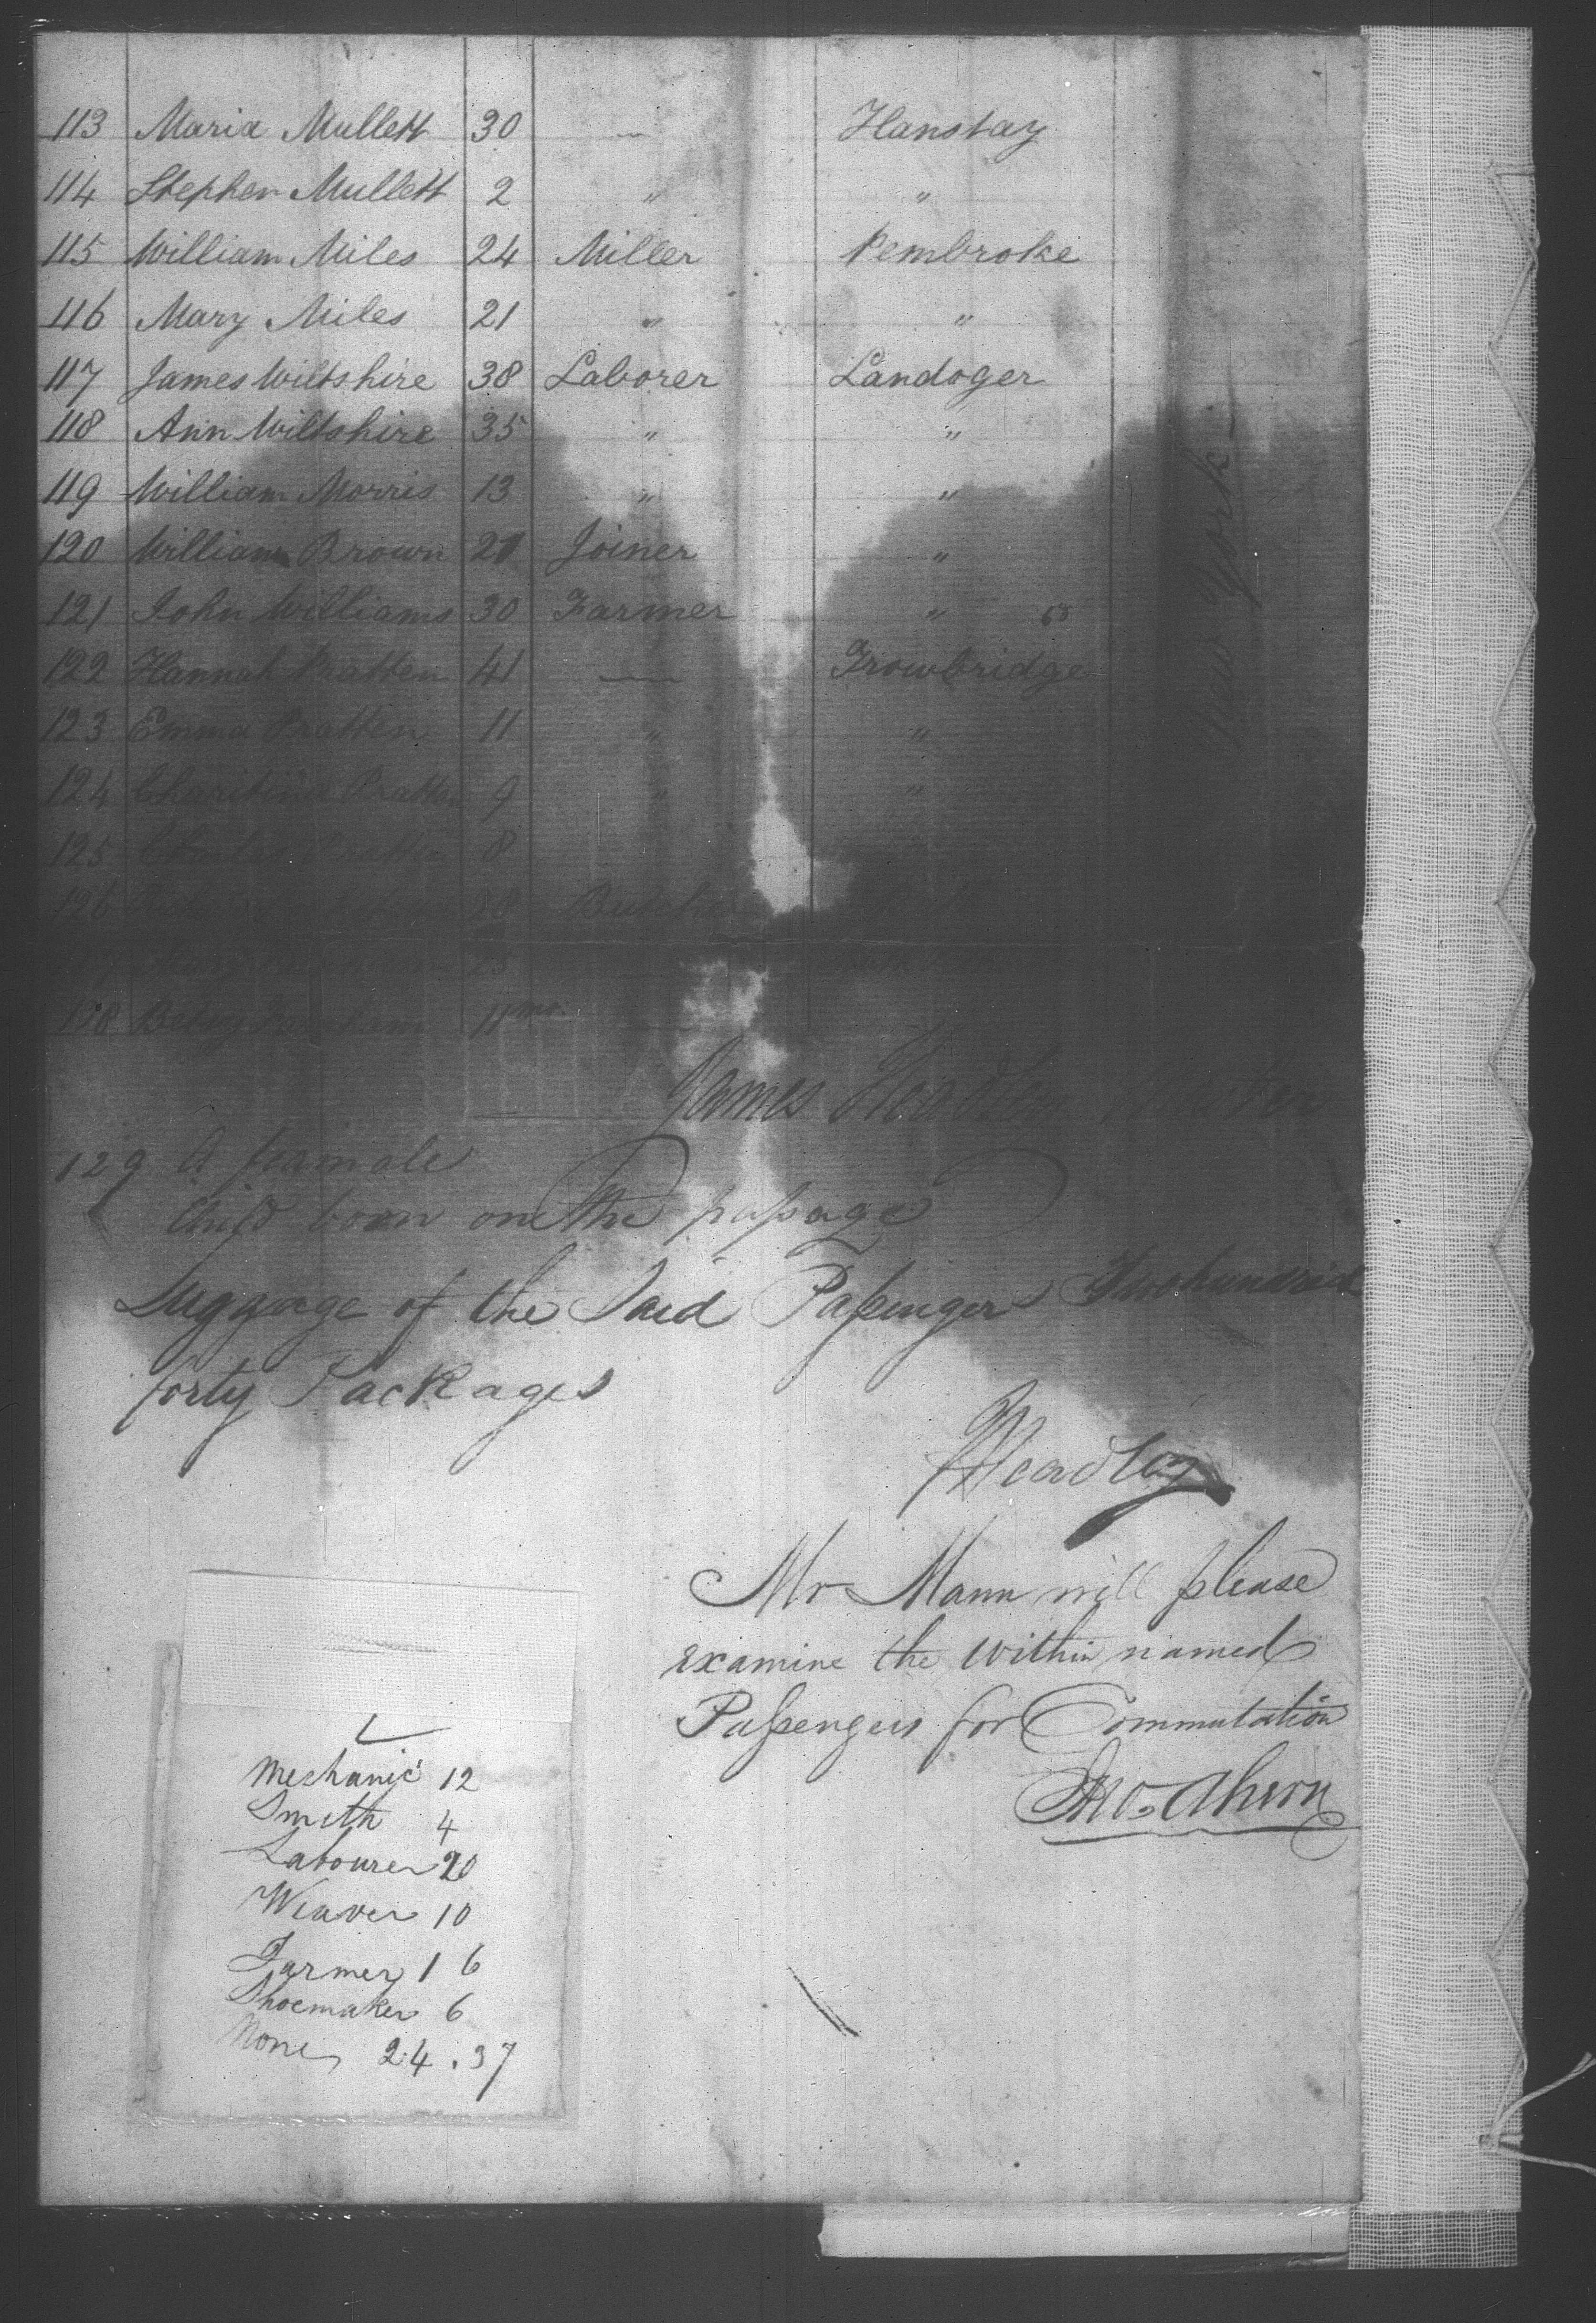 113 Maria Mullett 30 — Hanstay
114 Stephen Mullett 2 " "
115 William Miles 24 Miller Pembroke
116 Mary Miles 21 " "
117 James Wiltshire 38 Laborer Landoger
118 Ann Wiltshire 35 " "
119 William Morris 13 " "
120 William Brown 21 Joiner "
121 John Williams 30 Farmer " 68
122 Hannah Pratten 41 — Trowbridge
123 Emma Pratten 11 " "
124 Pratten 9 " "
125 Pratten 8
126
128 Betsy 11 mo
New York
James Headley Master
129 A feamale
Child born on the passage
Luggage of the Said Passengers Two hundred
forty Packages
JHeadley
Mr Mann will please
examine the within named
Passengers for Commutation
Jno. Ahern
Mechanic 12
Smith 4
Labourer 20
Weaver 10
Farmer 16
Shoemaker 6
None 24.37